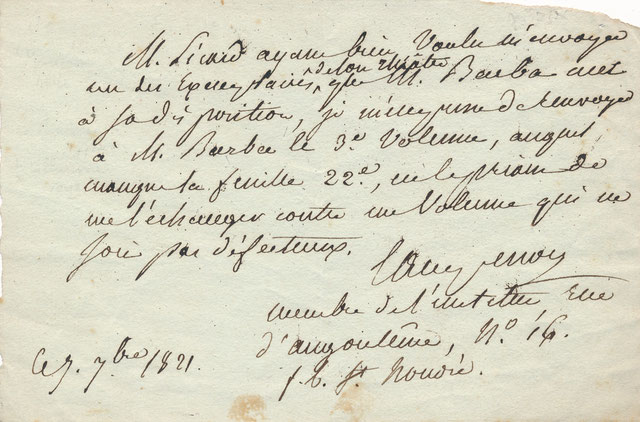 M. Picard ayant bien Voulu m'envoyer
de son théâtre
un des Exemplaires, que M. Barba met
à sa disposition, je m'empresse de renvoyer
à M. Barba le 3e. Volume, auquel
manque la feuille 22e., en le priant de
me l'échanger contre un Volume qui ne
soit pas défectueux.
Campenon
membre de l'institut Rue
d'angoulême, No. 16.
f. b. St honoré.
Ce 5. 7bre 1821.